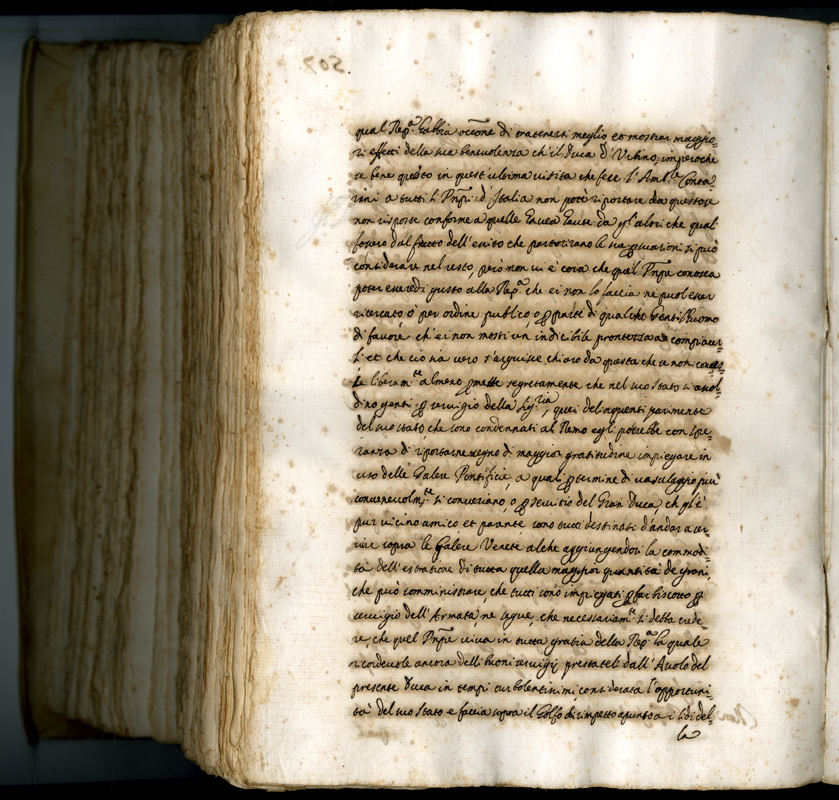 qual Rep.ca habbia occ.one di trattenersi meglio et mostrar maggio=
ri effetti della sua benevolenza ch'il Duca d'Urbino, imperoche
se bene questo in quest'ultima visita che fece l'Amb.re Conta=
rini a tutti li Prn̄pi d'Italia non potè riportare da questo se
non risposte conforme a quelle havea havute da gl'altri che qual
fossero dal frutto dell'esito che partorirano le sue si può
considerare nel resto, però non vi è cosa che quel Prn̄pe conosca
poter essere di gusto alla Rep.ca che ei non lo faccia ne puol esser
ricercato ò per ordine publico o ꝑ parte di qualche Gentil'huomo
di favore ch'ei non mostri un indicibile prontezza a compiacer=
li et che ciò sia vero s'arguisce chiaro da questo che se non conces=
se liberam.te almeno ꝑmette segretamente che nel suo stato si assol=
dino genti ꝑ servigio della Sig.ria, quei delinquenti parimente
del suo stato, che sono condennati al Remo egli potrebbe con spe=
ranza di riportarne segno di maggior gratitudine impiegare in
uso delle Galere Pontificie, a quali ꝑ termine di vassallaggio più
convenevolm.te si converiano, o ꝑ servitio del Gran Duca, ch gl'è
pur vicino amico et parente sono tutti destinati d'andar a ser=
vire sopra le Galere Venete, alche aggiungendosi la commodi=
tà dell'estratione di tutta quella maggior quantità de grani,
che può somministrare, che tutti sono impiegati ꝑ far biscotto ꝑ
servigio dell'Armata ne segue, che necessariam.te si debba crede=
re, che quel Prn̄pe viva in tutta gratia della Rep.ca la quale
ricordevole ancora delli buoni servigij prestateli dall'Avolo del
presente Duca in tempi turbolentissimi considerata l'opportuni=
tà del suo stato e faccia sopra il Golfo dirimpetto apunto a i lidi del=
la